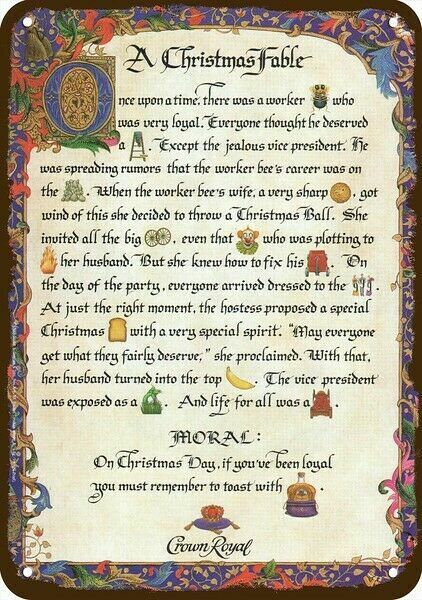 A Christmas Fable
Once upon a time, there was a worker who
was very loyal. Everyone thought he deserved
a . Except the jealous vice president. He
was spreading rumors that the worker bee's career was on
the . When the worker bee's wife, a very sharp , got
wind of this she decided to throw a Christmas Ball. She
invited all the big , even that who was plotting to
her husband. But she knew how to fix his . On
the day of the party, everyone arrived dressed to the .
At just the right moment, the hostess proposed a special
Christmas with a very special spirit. "May everyone
get what they fairly deserve," she proclaimed. With that,
her husband turned into the top . The vice president
was exposed as a . And life for all was a .
MORAL:
On Christmas Day, if you've been loyal
you must remember to toast with .
Crown Royal